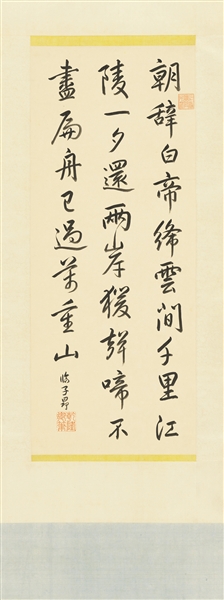 朝辭白帝絳雲間千里江
陵一夕還兩岸猨聲啼不
盡扁舟已過萬重山
臨子昂